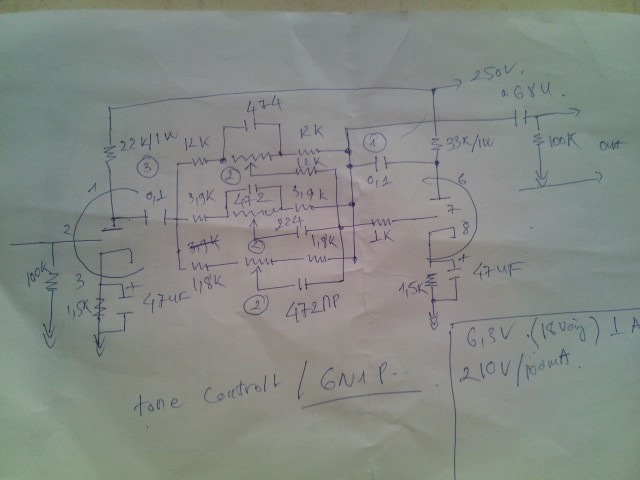 250V.
0.68U
474
22K/1W
12K
12K
1
33K/1W
100K
out
3
12K
2
0,1
6
1
0,1
3,9K
472
3,9K
7
2
224
8
3,9K
2
1,8K
1K
100K
3
1,8K
2
47UF
1,5K
47UF
1,5K
472ПР
6,3V. (18V) 1 A
210V/100mA.
tone Controll / 6N1P.